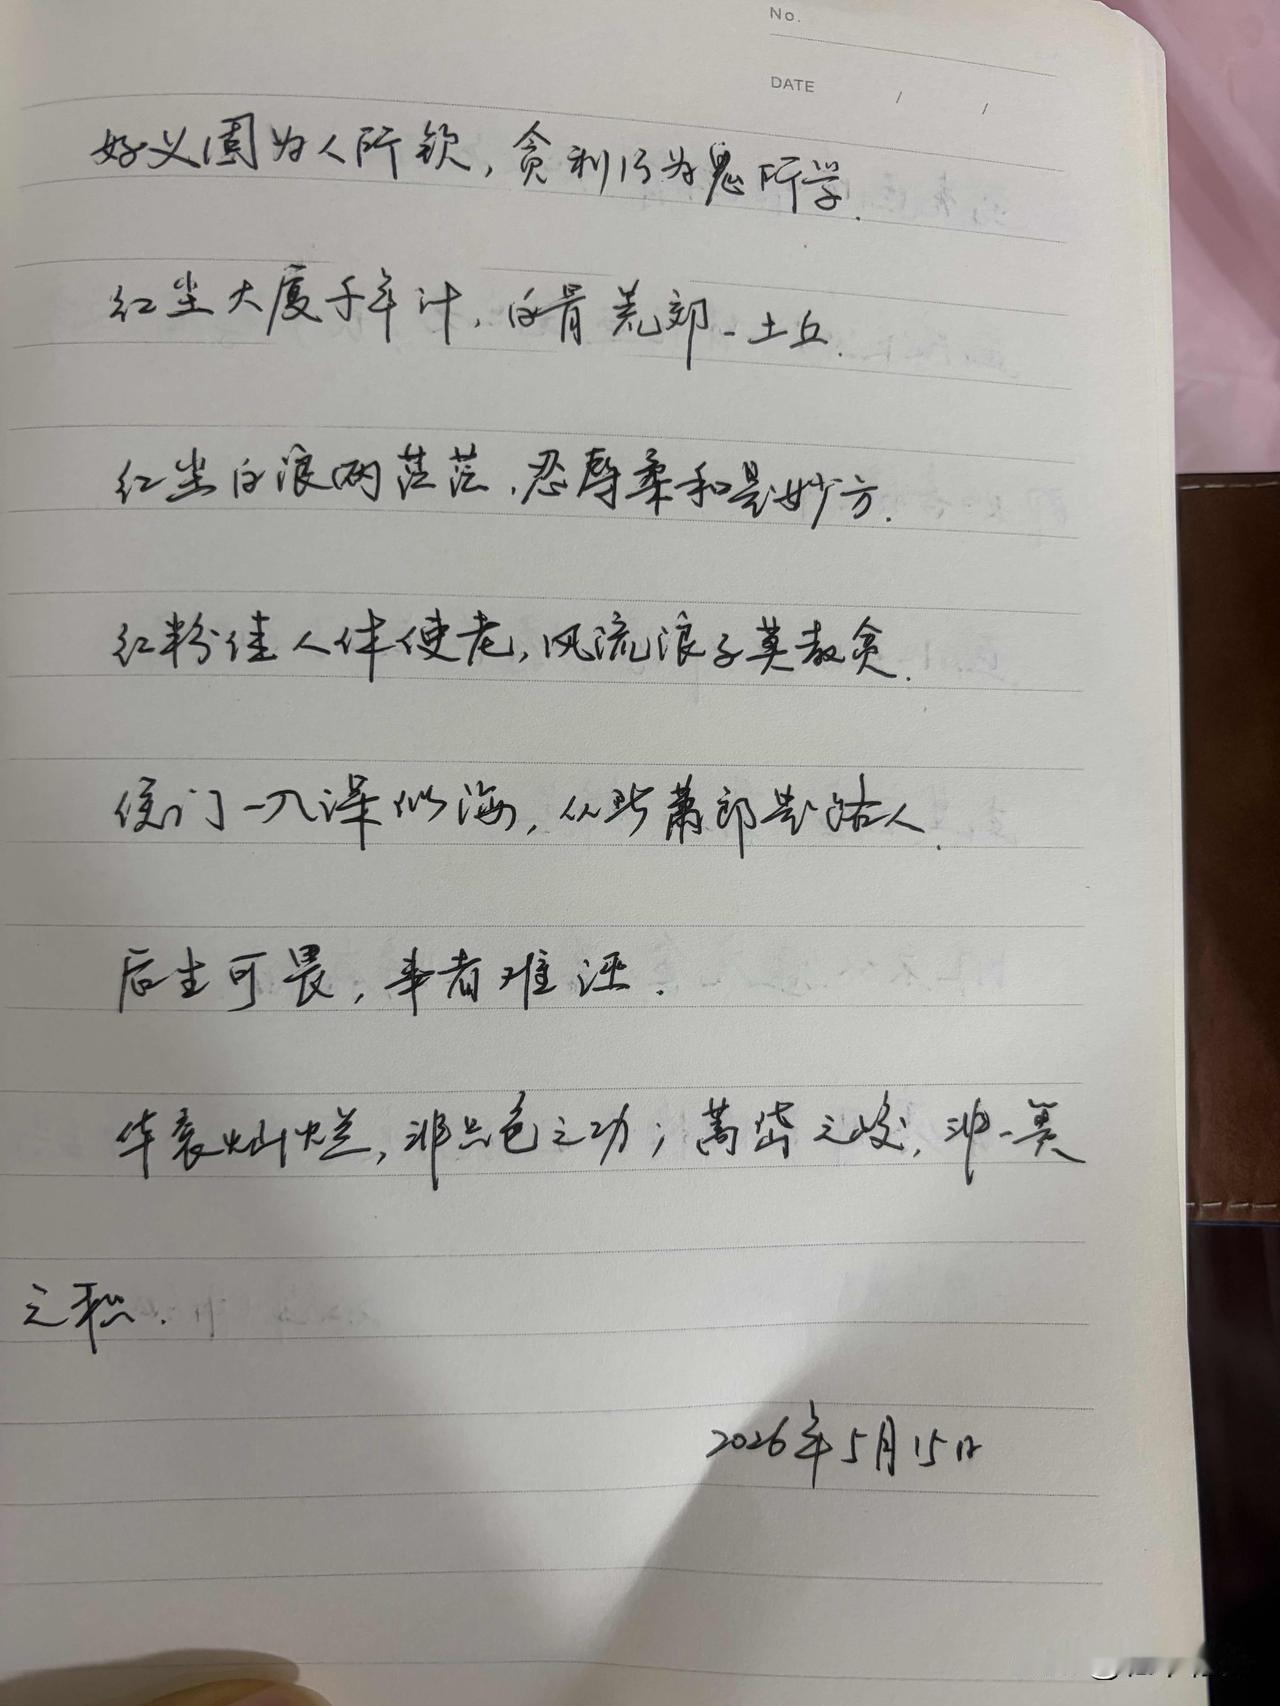 No.
DATE / /
好义固为人所钦，贪利乃为鬼所学.
红尘大厦千年计，白骨荒郊一土丘.
红尘白浪两茫茫，忍辱柔和是妙方.
红粉佳人休使老，风流浪子莫教贫.
侯门一入深似海，从此萧郎是路人.
后生可畏，来者难诬.
华衮灿烂，非只色之功；嵩岱之峻，非一篑
之积.
2026年5月15日